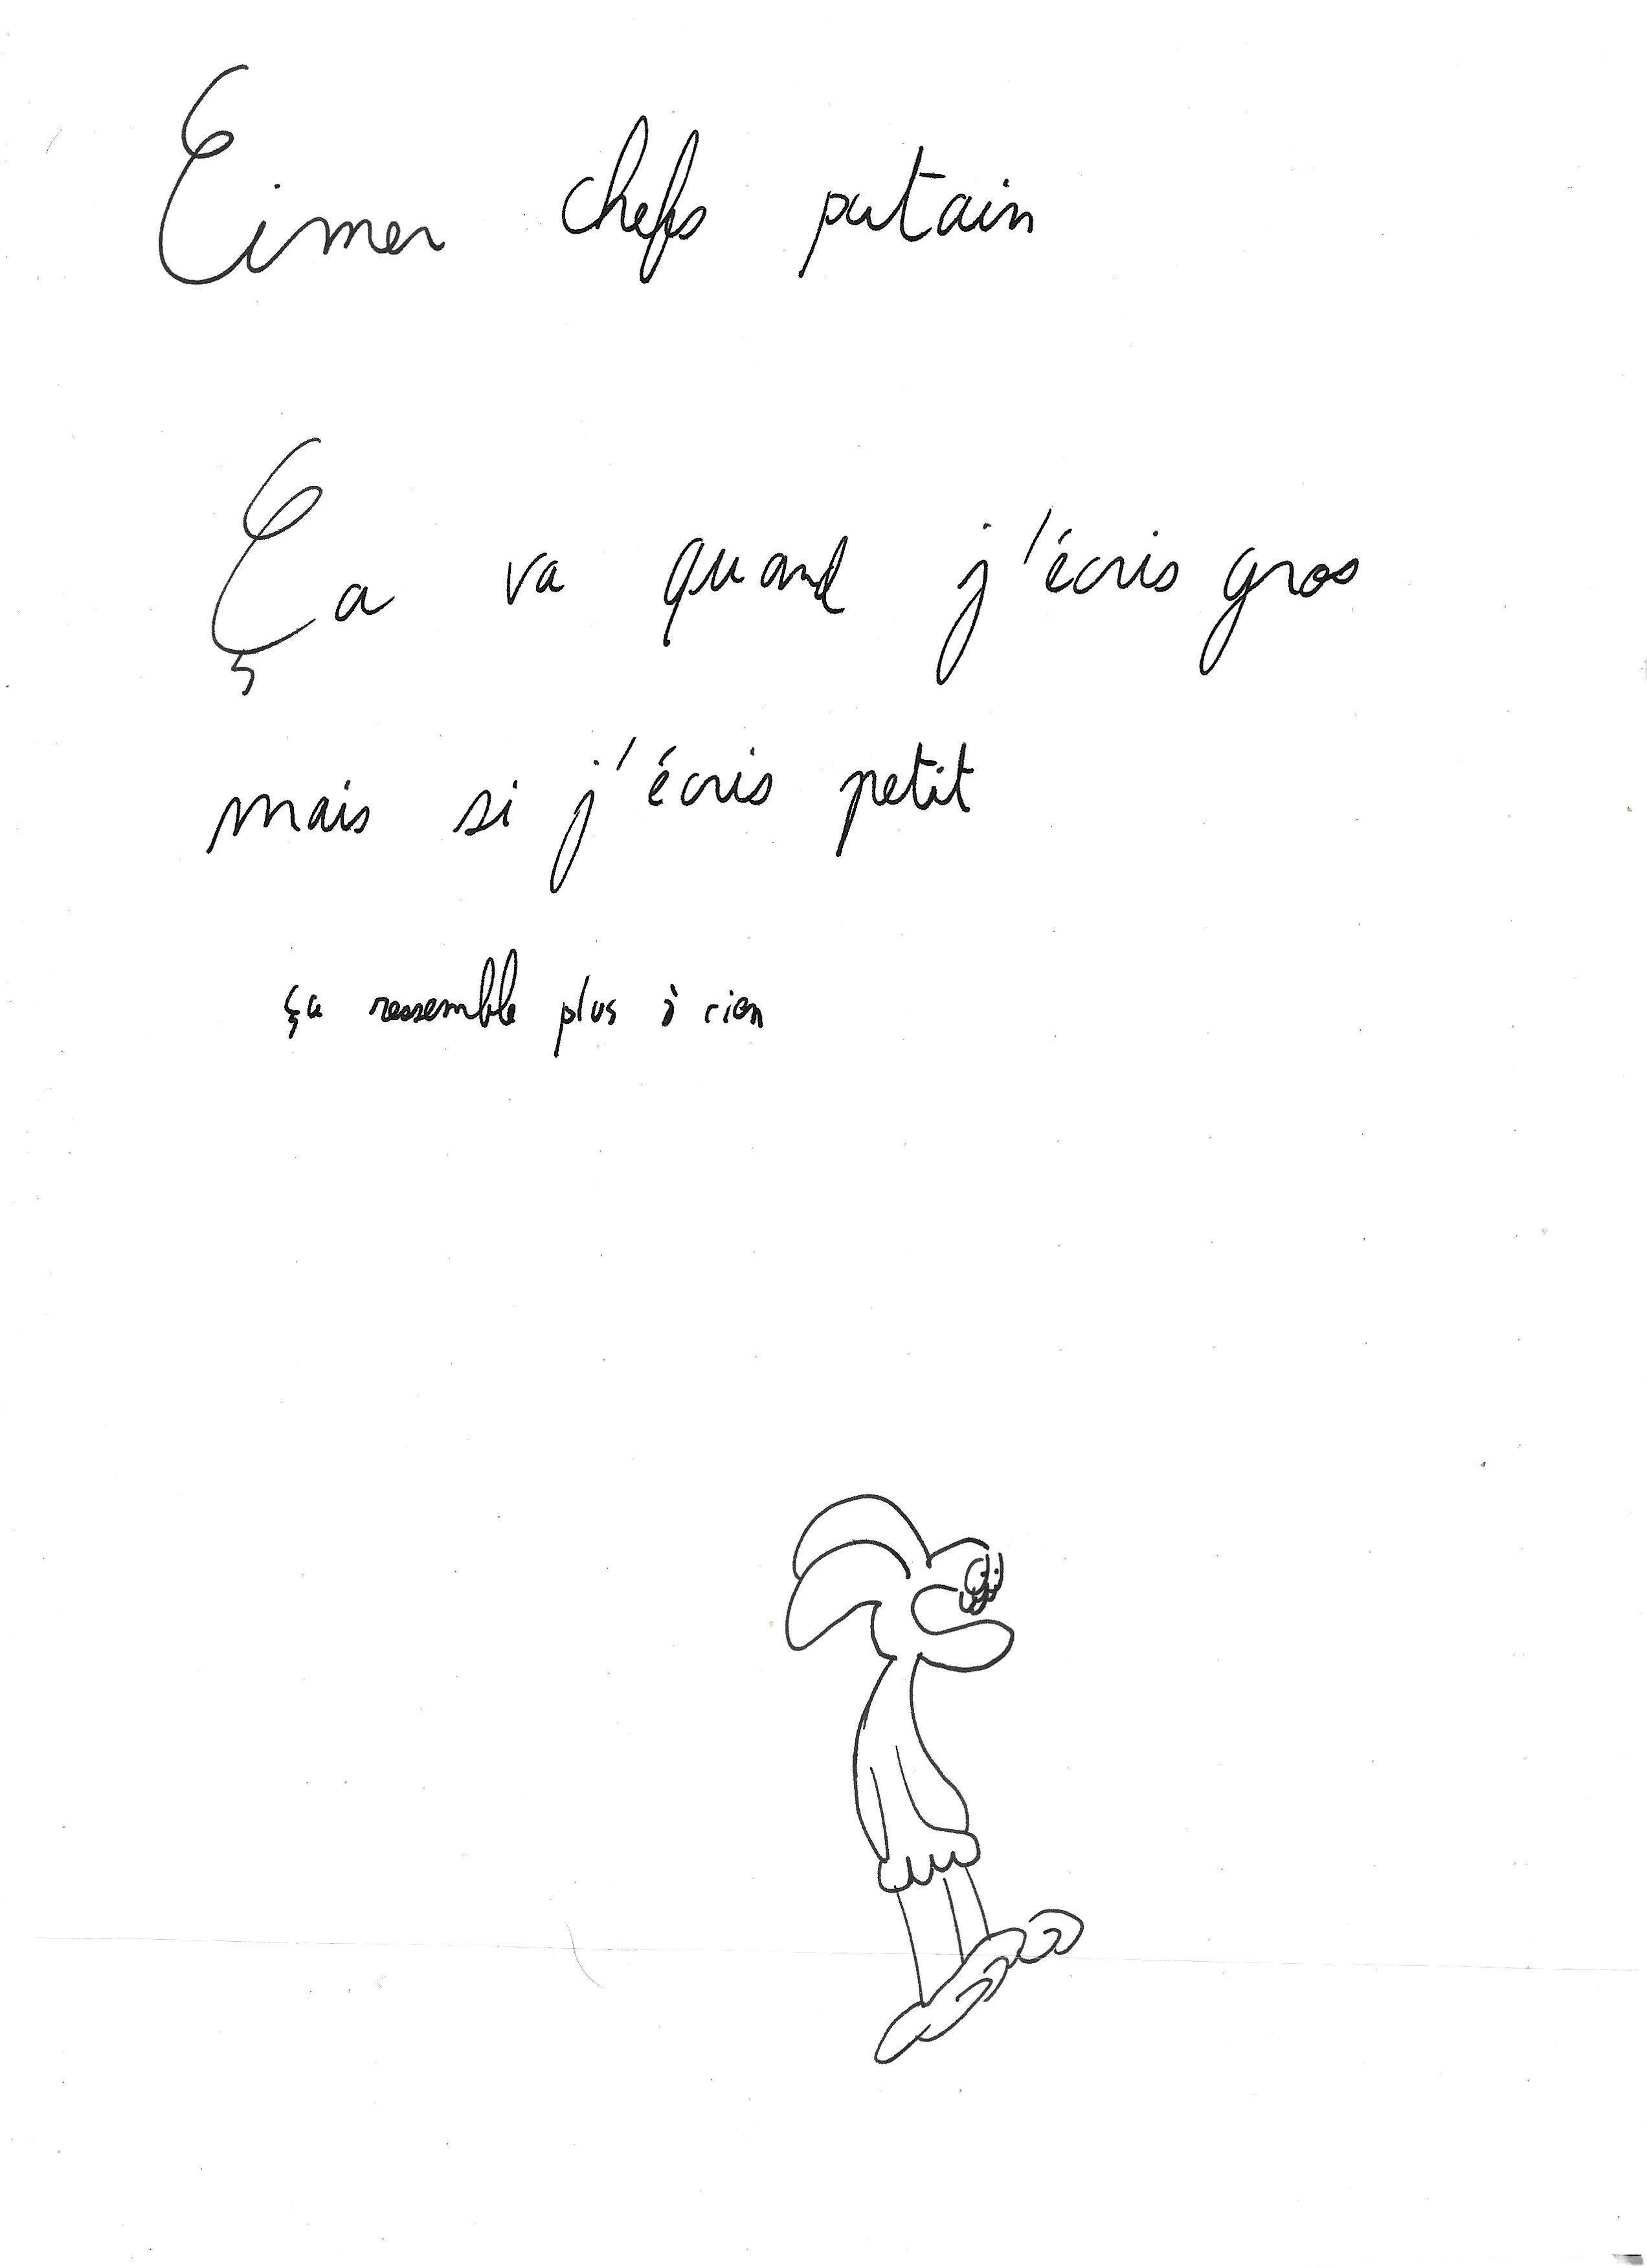 Eimer chefs putain
Ça va quand j'écris gros
mais si j'écris petit
ça ressemble plus à rien